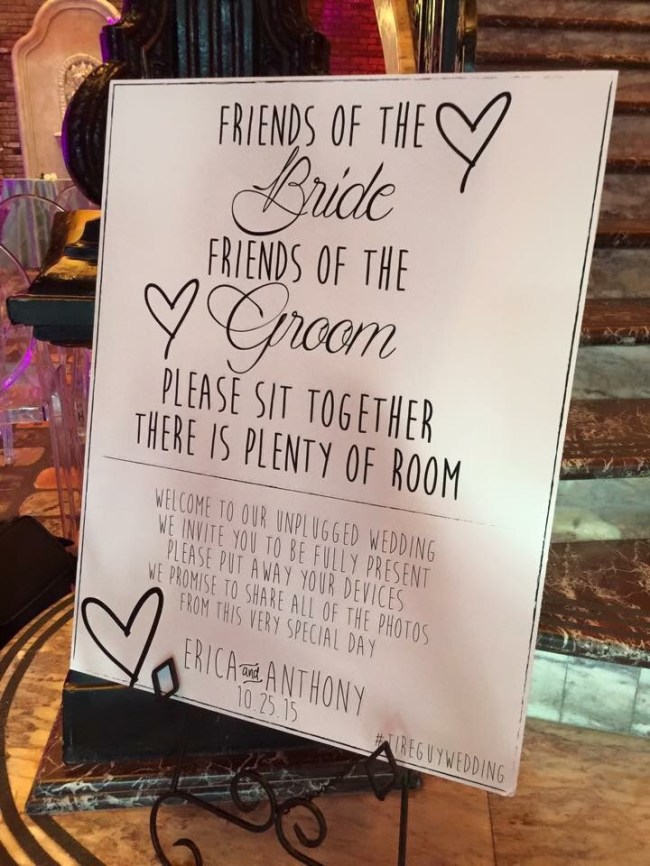 FRIENDS OF THE
Bride
FRIENDS OF THE
Groom
PLEASE SIT TOGETHER
THERE IS PLENTY OF ROOM
WELCOME TO OUR UNPLUGGED WEDDING
WE INVITE YOU TO BE FULLY PRESENT
PLEASE PUT AWAY YOUR DEVICES
WE PROMISE TO SHARE ALL OF THE PHOTOS
FROM THIS VERY SPECIAL DAY
ERICA and ANTHONY
10.25.15
#TIREGUYWEDDING